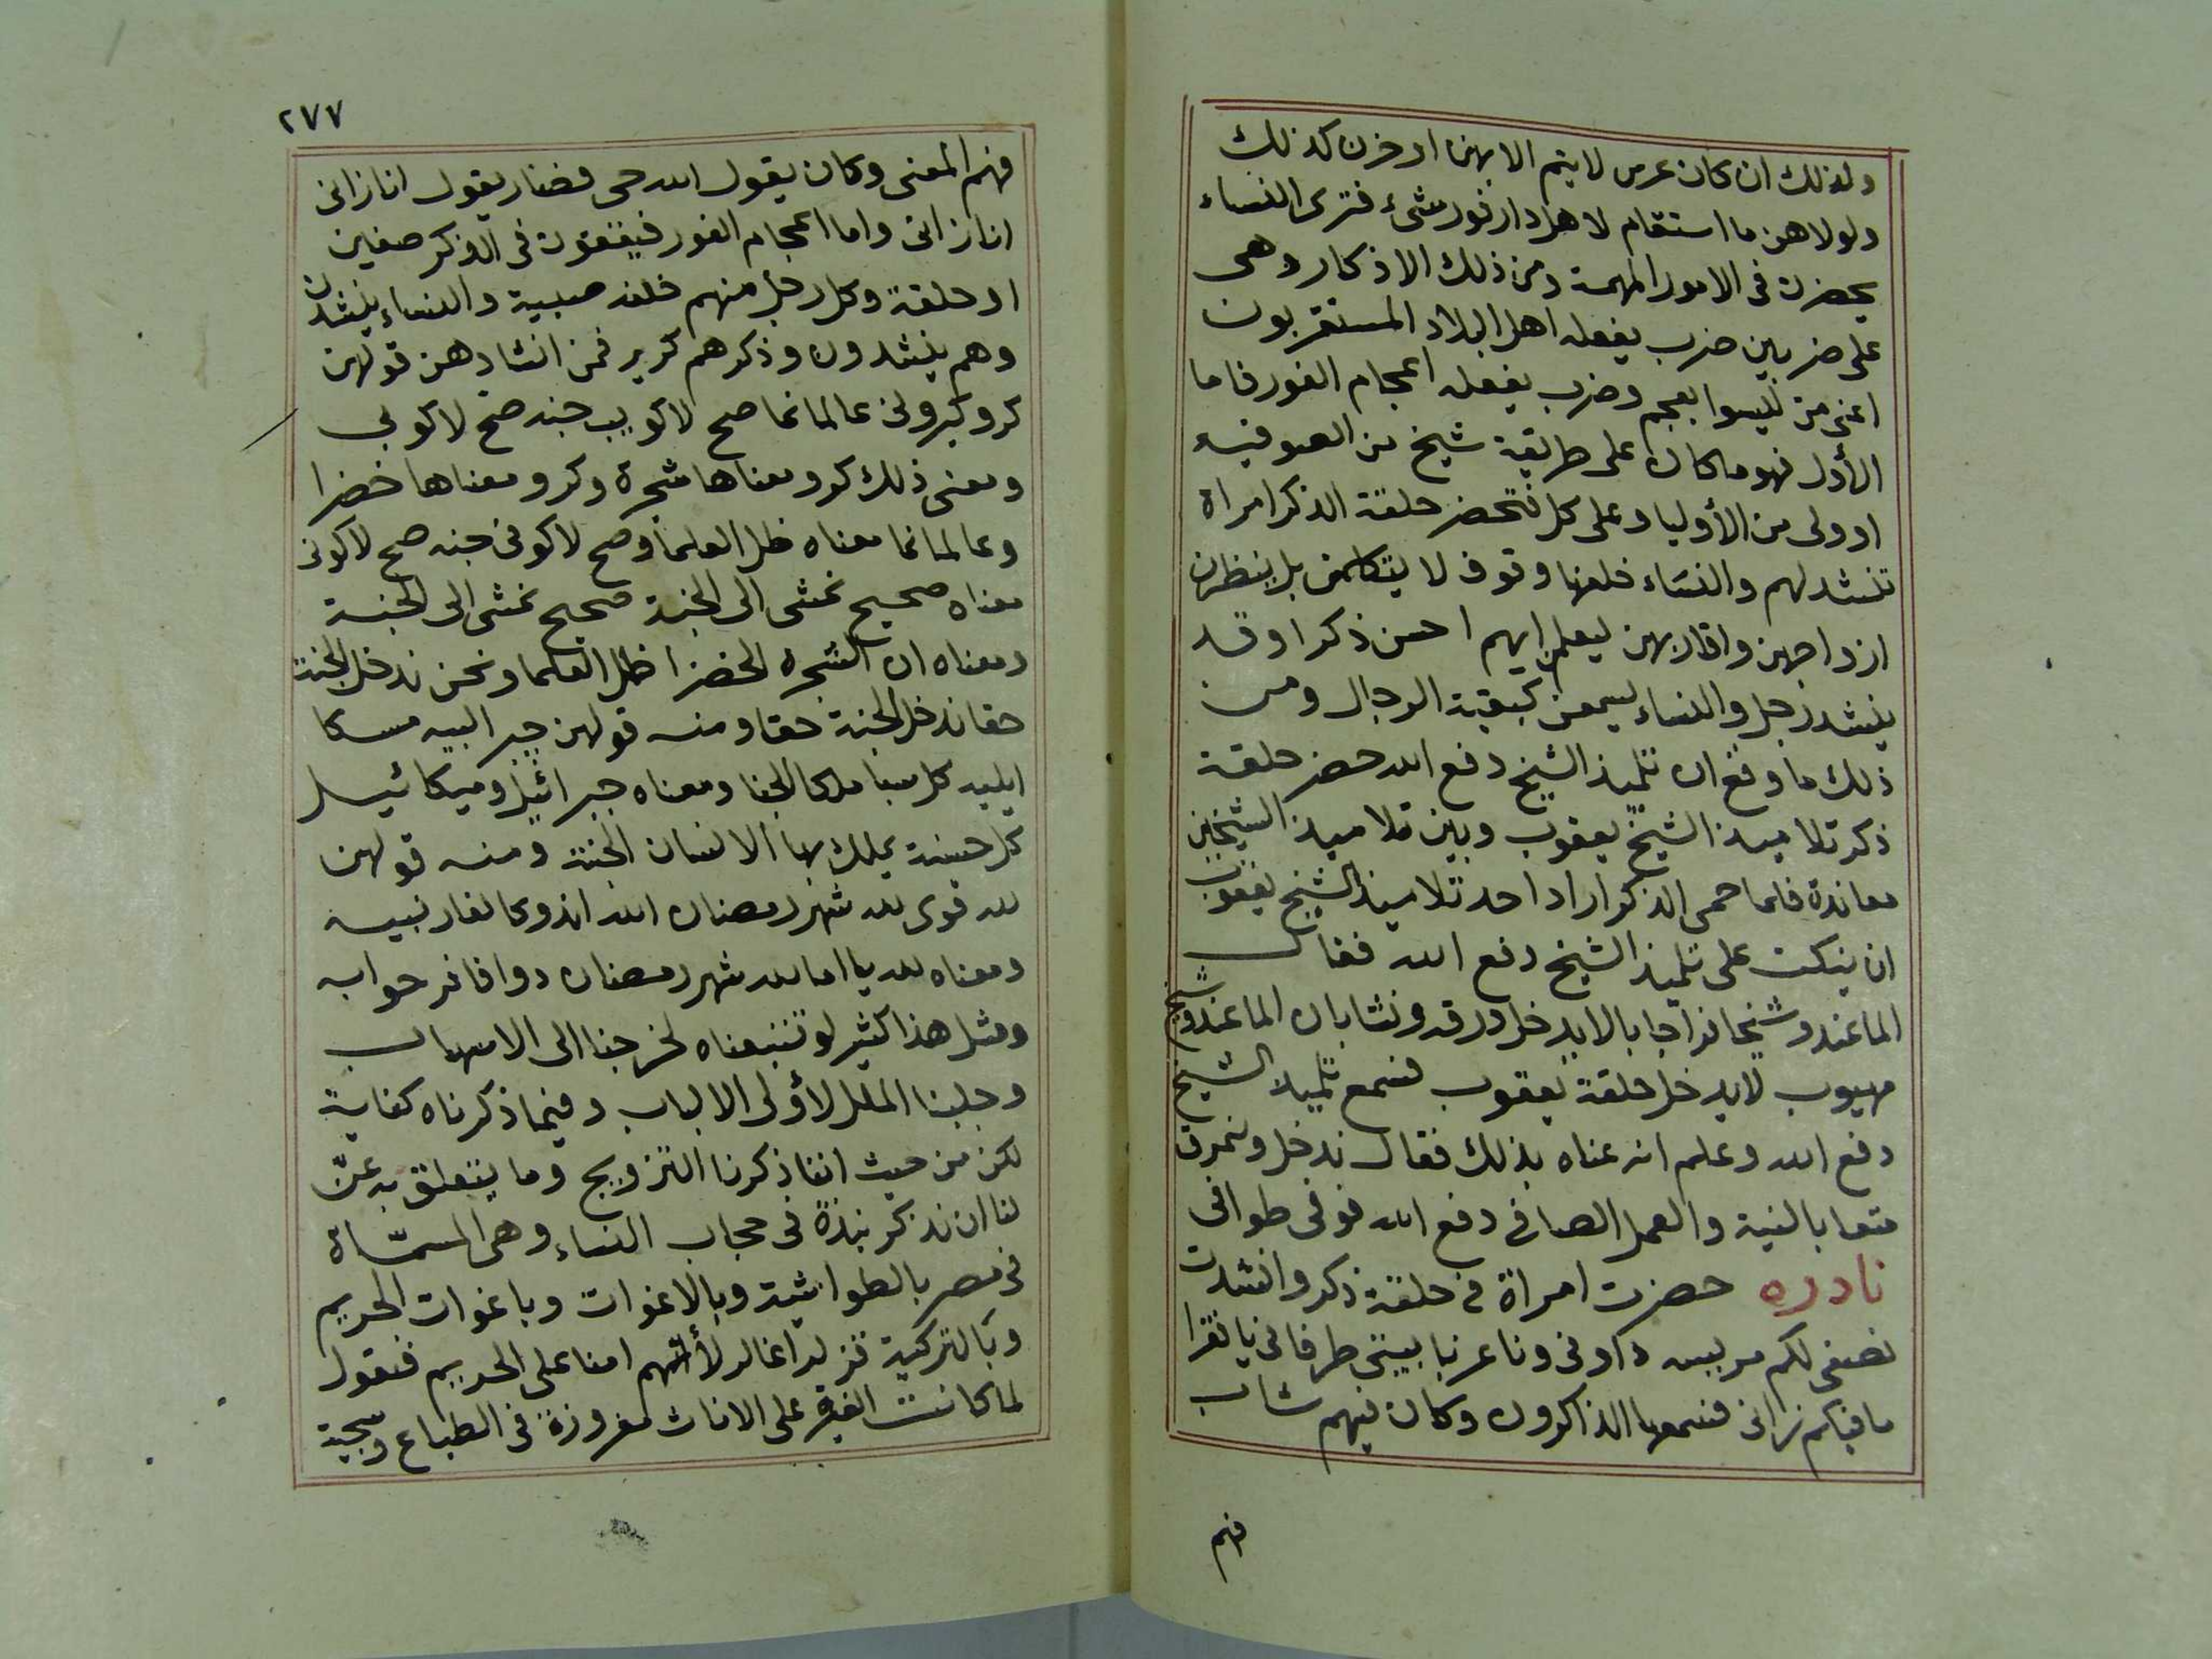 ولذلك ان كان عرس لا يتم الا بهن او حزن كذلك
ولولاهن ما استقام لاهل دارفور شئ فترى النساء
يحضرن فى الامور المهمة ومن ذلك الاذكار وهى
على ضربين ضرب يفعله اهل البلاد المستقربون
اعنى من ليسوا بعجم وضرب يفعله اعجام الفور فاما
الأول فهو ما كان على طريقة شيخ من الصوفيه
او ولى من الأوليا وعلى كل فتحضر حلقة الذكر امراة
تنشد لهم والنساء خلفها وقوف لا يتكلمن بل ينظرن
ازواجهن واقاربهن ليعلمن ايهم احسن ذكرا وقد
ينشد رجل والنساء يسمعن كبقية الرجال ومن
ذلك ما وقع ان تلميذ الشيخ دفع الله حضر حلقة
ذكر تلاميذ الشيخ يعقوب وبين تلاميذ الشيخين
معاندة فلما حمى الذكر اراد احد تلاميذ الشيخ يعقوب
ان ينكت على تلميذ الشيخ دفع الله فقال
الما عندو شيخا نراجا بالا يدخل ورقد ونشابان الما عندو شيخ
مهيوب لا يدخل حلقة يعقوب فسمع تلميذ الشيخ
دفع الله وعلم انه عناه بذلك فقال ندخل ونمرق
متعا بالنية والعمل الصافى دفع الله فوقى طوافى
نادره حضرت امراة فى حلقة ذكر وانشدت
نصفى لكم مريسه داوفى ونا عزبا بيتى طرفانى يا فقرا
ما فيكم زانى فسمعها الذاكرون وكان فيهم شاب
فهم
٢٧٧
فهم المعنى وكان يقول الله حى فصار يقول انا زانى
انا زانى واما اعجام الفور فيقفون فى الذكر صفين
او حلقة وكل رجل منهم خلفه صبية والنساء ينشدن
وهم ينشدون وذكرهم كرير فمن انشادهن قولهن
كرو كيرو عالمانما صح لاكو جنه صح لاكونى
ومعنى ذلك كرو معناها شجرة وكرو معناها خضرا
وعالمانما معناه ظل العلما وصح لاكونى جنه صح لاكونى
معناه صحيح نمشى الى الجنة صحيح نمشى الى الجنة
ومعناه ان الشجره الخضرا ظل العلما ونحن ندخل الجنة
حقا ندخل الجنة حقا ومنه قولهن جبراليه مسكا
ايليه كل سبا ملكا الجنا ومعناه جبرائيل وميكائيل
كل حسنة يملك بها الانسان الجنة ومنه قولهن
لله قوى لله شهر رمضان الله
ومعناه لله يا اما لله شهر رمضان دوا
ومثل هذا كثير لو تتبعناه لخرجنا الى الاسهاب
وجلبنا الملل لأولى الالباب وفيما ذكرناه كفاية
لكن من حيث اننا ذكرنا التزويج وما يتعلق به عنّ
لنا ان نذكر نبذة فى حجاب النساء وهى المسمّاة
فى مصر بالطواشية وبالاغوات وباغوات الحريم
وبالتركية قزلر اغالر لأنهم امنا على الحريم فنقول
لما كانت الغيرة على الاناث مغروزة فى الطباع وسجية